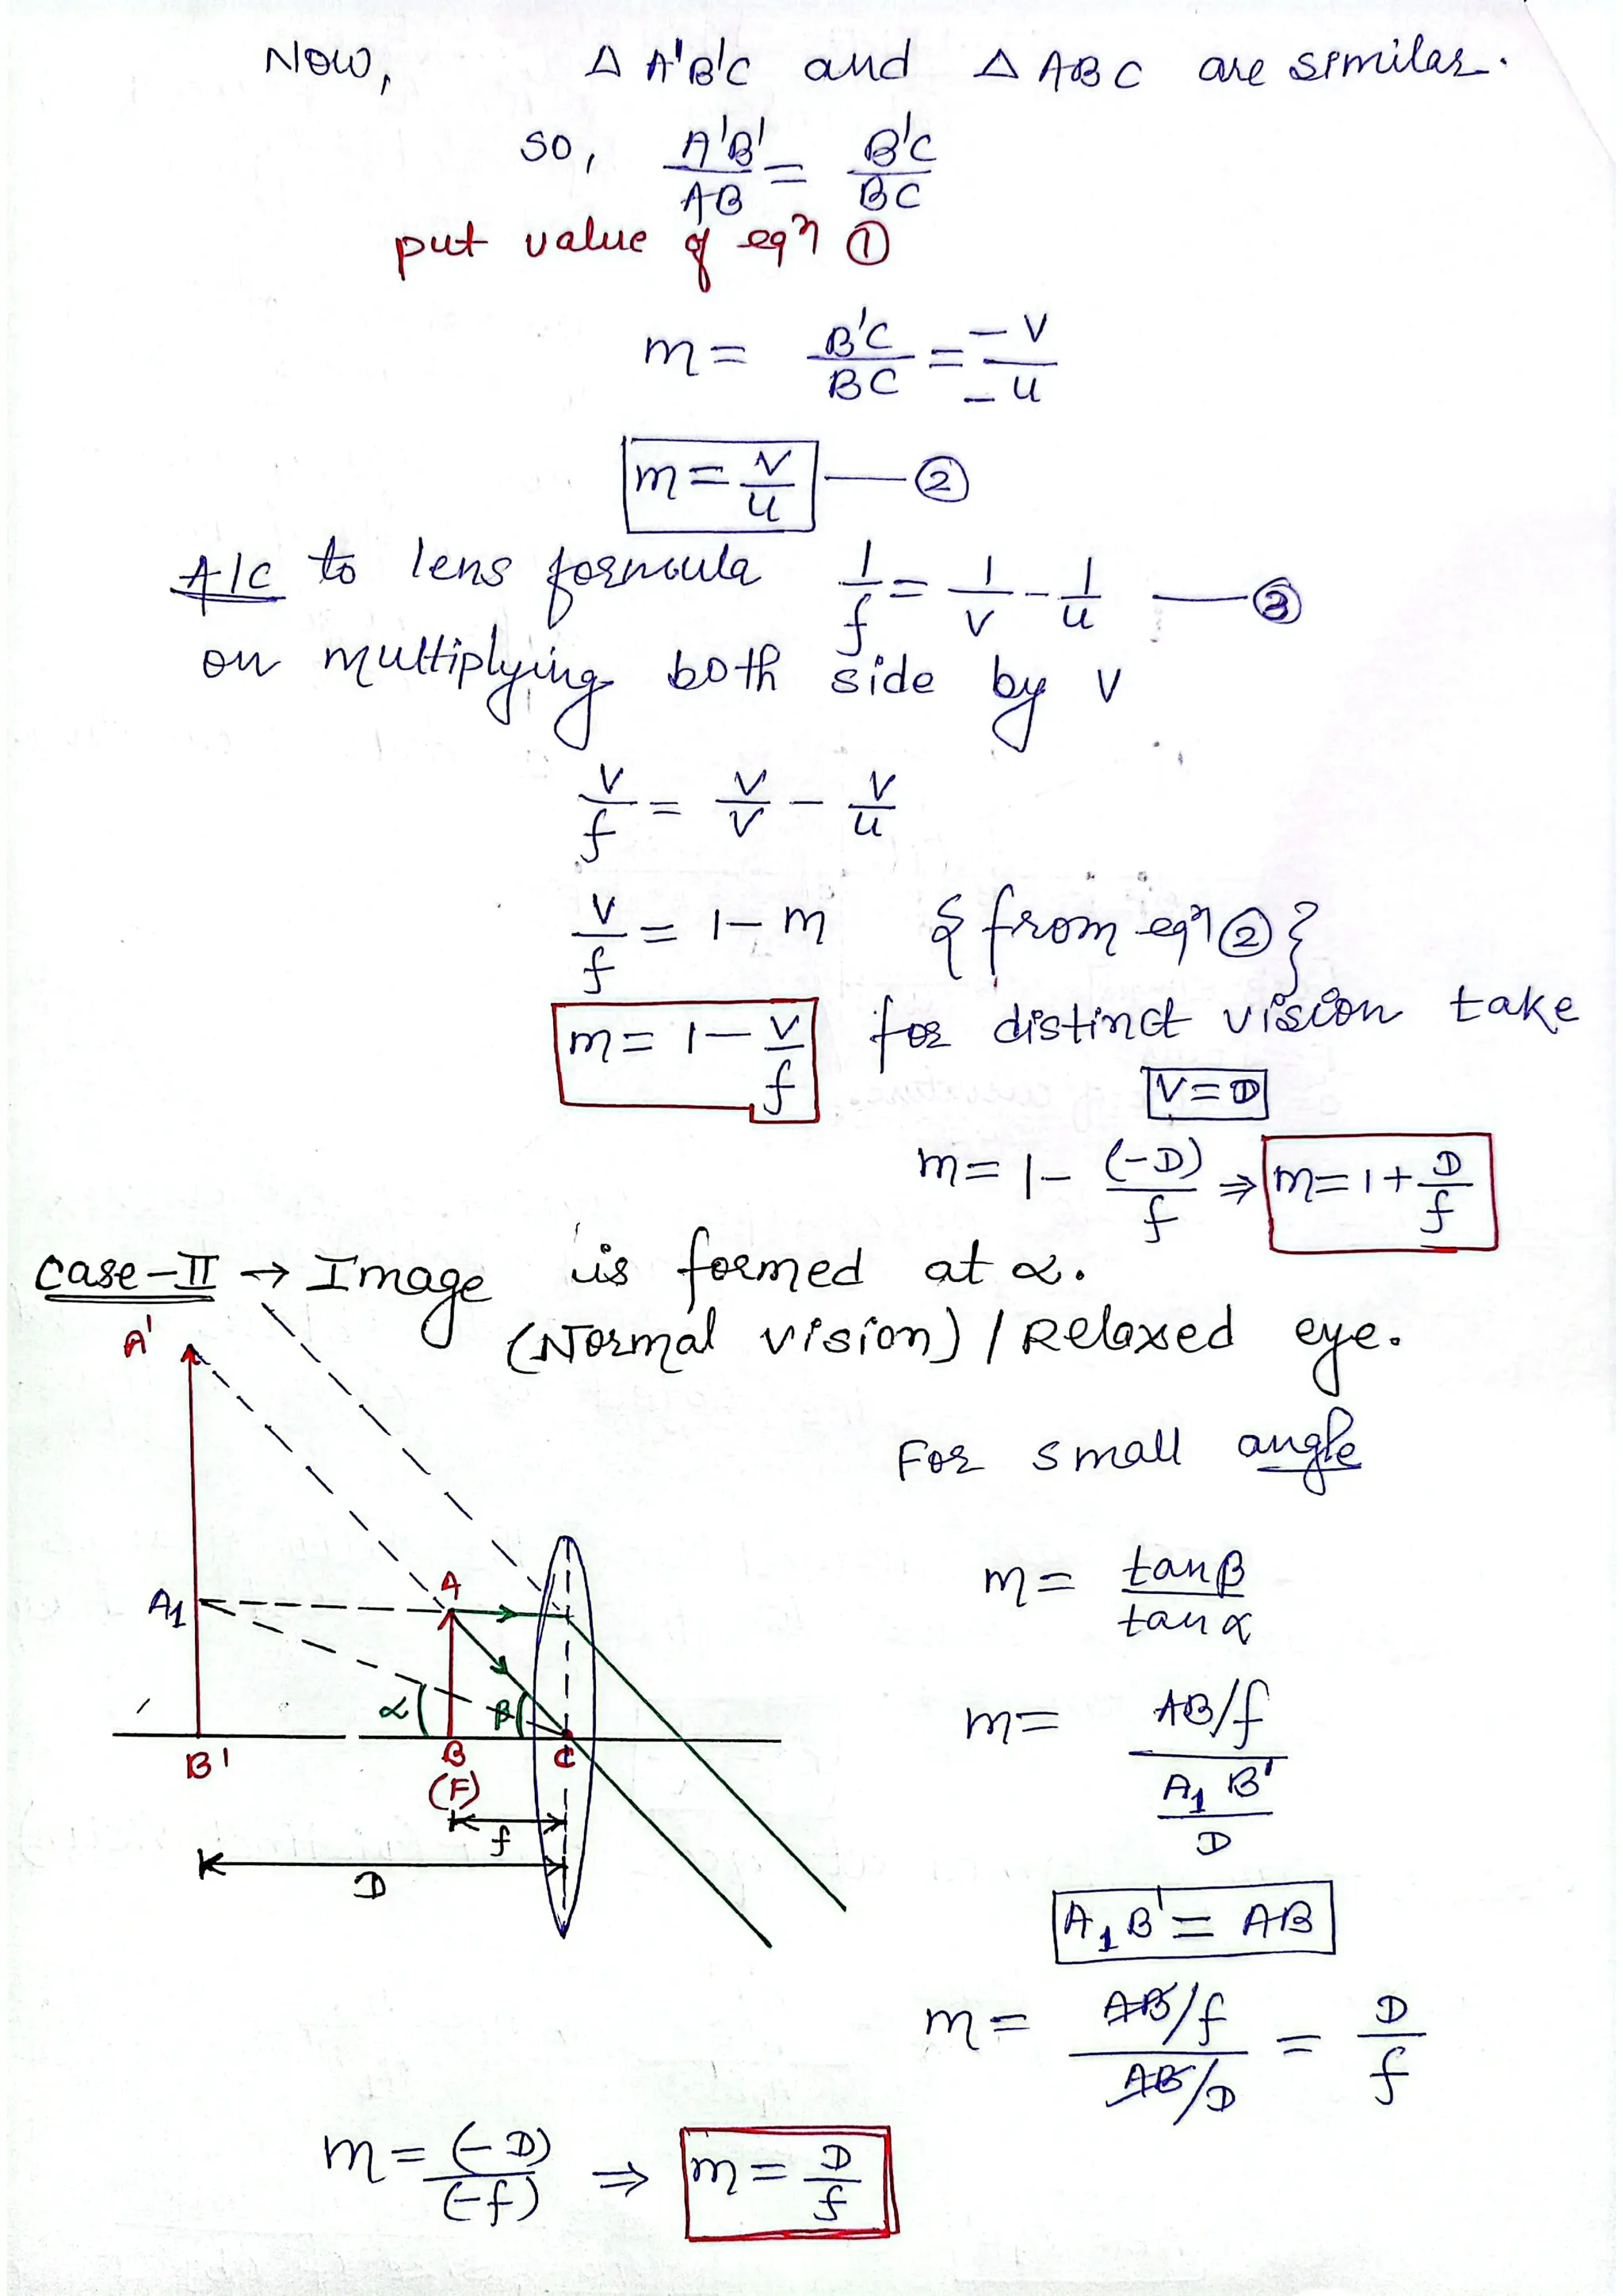 Now, Δ A'B'C and Δ ABC are similar.
so, A'B'/AB = B'C/BC
put value of eqn ①
m = B'C/BC = -V/-u
m = V/u —— ②
A/C to lens formula 1/f = 1/V - 1/u —— ③
on multiplying both side by V
V/f = V/V - V/u
V/f = 1 - m {from eqn ②}
m = 1 - V/f for distinct vision take
V = D
m = 1 - (-D)/f ⇒ m = 1 + D/f
case-II → Image is formed at α.
(Normal vision) / Relaxed eye.
A'
For small angle
A
A1
m = tanβ/tanα
α
β
B'
B
C
(F)
f
D
m = AB/f / A1 B'/D
A1 B' = AB
m = AB/f / AB/D = D/f
m = (-D)/(-f) ⇒ m = D/f